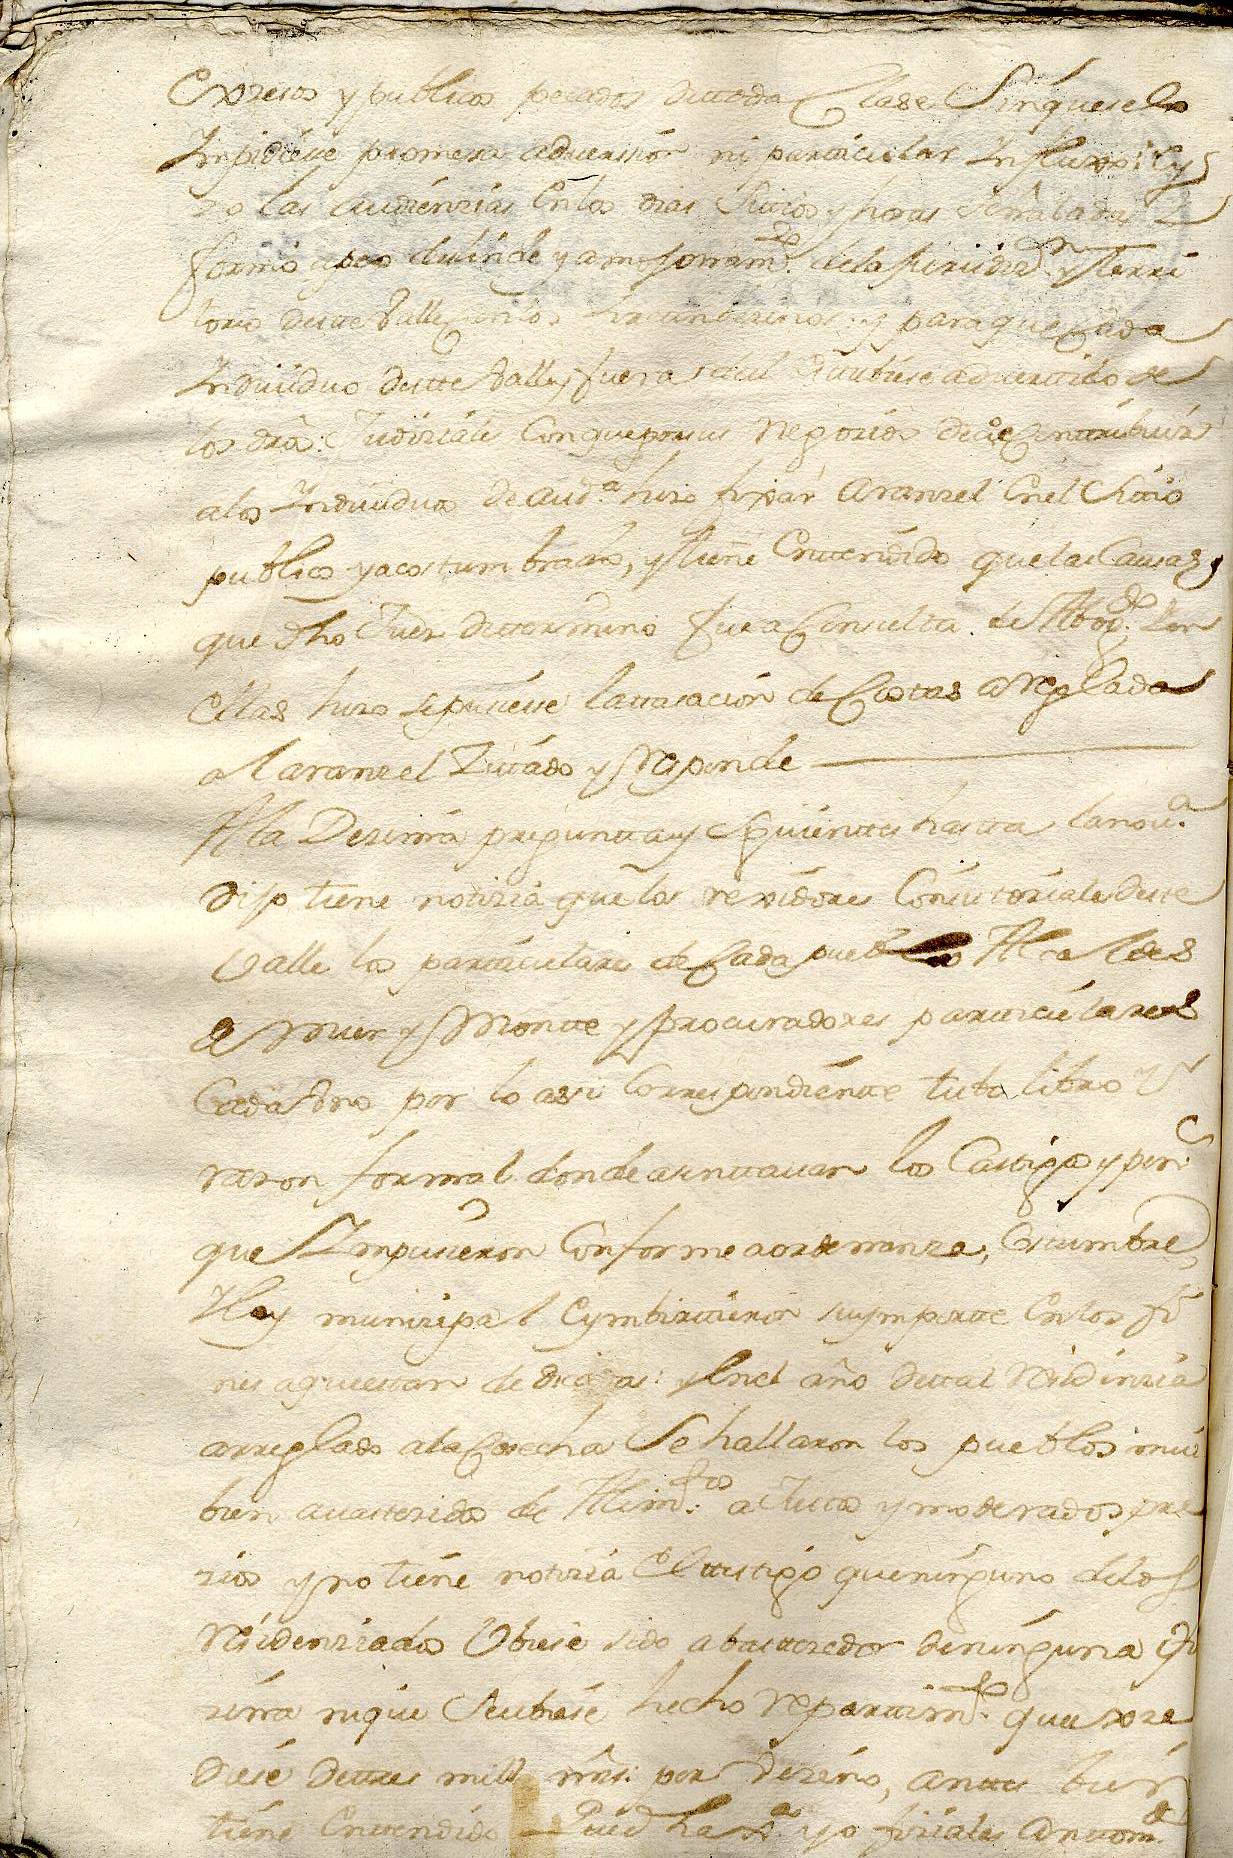 Exzesos y publicos pecados de toda Clase Sin que se lo
Impidiese promesa adversion ni particular Influxo: oy
zo las audienzias En los dias Sitios y horas Señaladas
formó apeo deslinde y amojonamto. de la Jurisdizn. y terri
torio deste Valle con los circunvezinos: y para que Cada
Individuo deste Valle, y fuera del Estubiese advertido de
los drôs: Judiziales Con que por sus Negozios deve Contribuir
a los Individuos de auda. hizo fixar aranzel En el Sitio
publico y acostumbrado, y tiene Entendido que las Causas,
que dho Juez determinó fue a Consulta de Abogdo. Y en
Ellas hizo se pusiese la tasación de Costas arreglada
al aranzel Zitado y Responde
A la Dezima pregunta y siguientes hasta la nova.
dijo tiene notizia que los rexidores Consistoriales deste
Valle los particulares de Cada pueblo Alcaldes
de Mier y Monte y procuradores particulares
Cada Uno por lo asi Correspondiente tubo libro y
razon formal donde asentavan los Castigos y pens.
que Impusieron Conforme a ordenanza, Costumbre,
Ley municipal Cymbirtieron su ymporte En los fi
nes a que estan dedicas: y En el año de tal Residenzia
arreglado a la Cosecha Se hallaron los pueblos mui
bien avastezidos de Alimtos. a Justos y moderados pre
zios y no tiene notizia El testigo que ninguno de los
Residenziados Ubiese sido abastezedor de ninguna ofi
zina ni que Se ubiese hecho repartimto. que exze
diese de tres mill mrs: por dezeno, antes bien
tiene Entendido qued ha xa. y ofiziales Anuom.